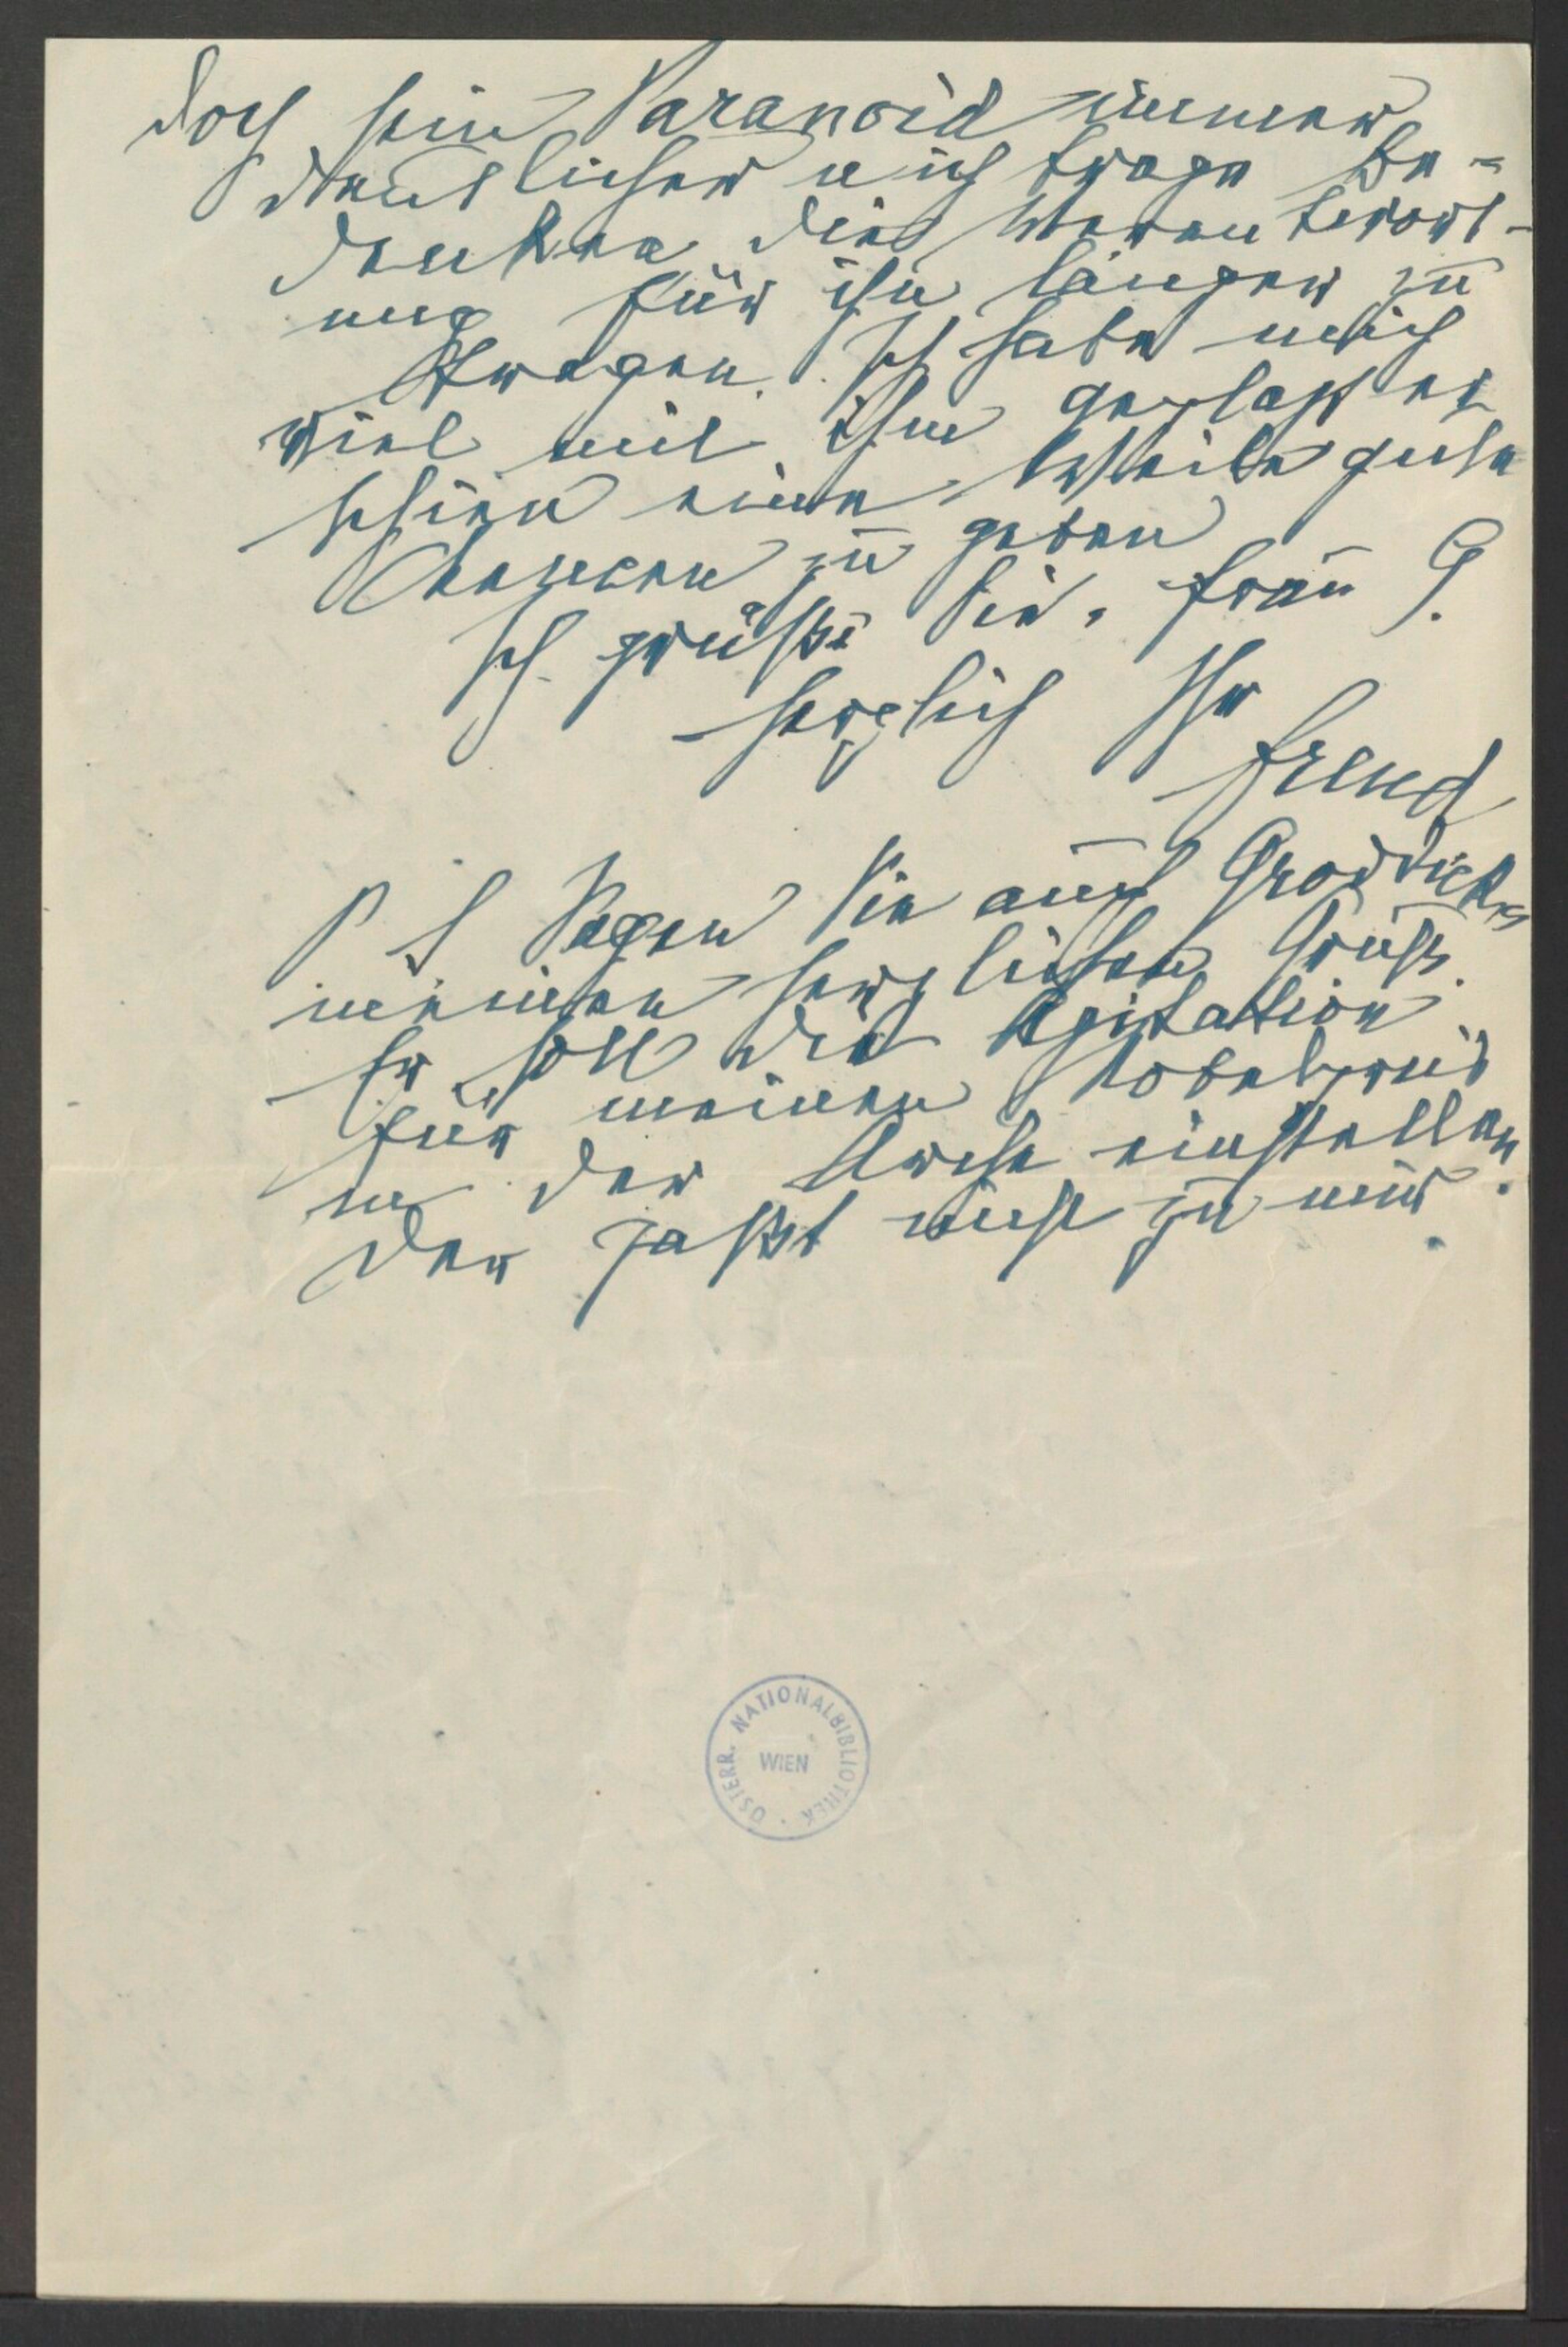 doch sein Paranoid immer
deutlicher u ich trage Be-
denken die Verantwort-
ung für ihn länger zu
tragen. Ich habe mich
viel mit ihm geplagt er
schien eine Weile gute
Chancen zu geben
Ich grüße Sie, Frau G.
herzlich Ihr
Freud
P S Sagen Sie auch Groddeck
meinen herzlichen Gruß.
Er soll die Agitation
für meinen Nobelpreis
in der Arche einstellen.
Der paßt nicht zu mir.
ÖSTERR. NATIONALBIBLIOTHEK
WIEN